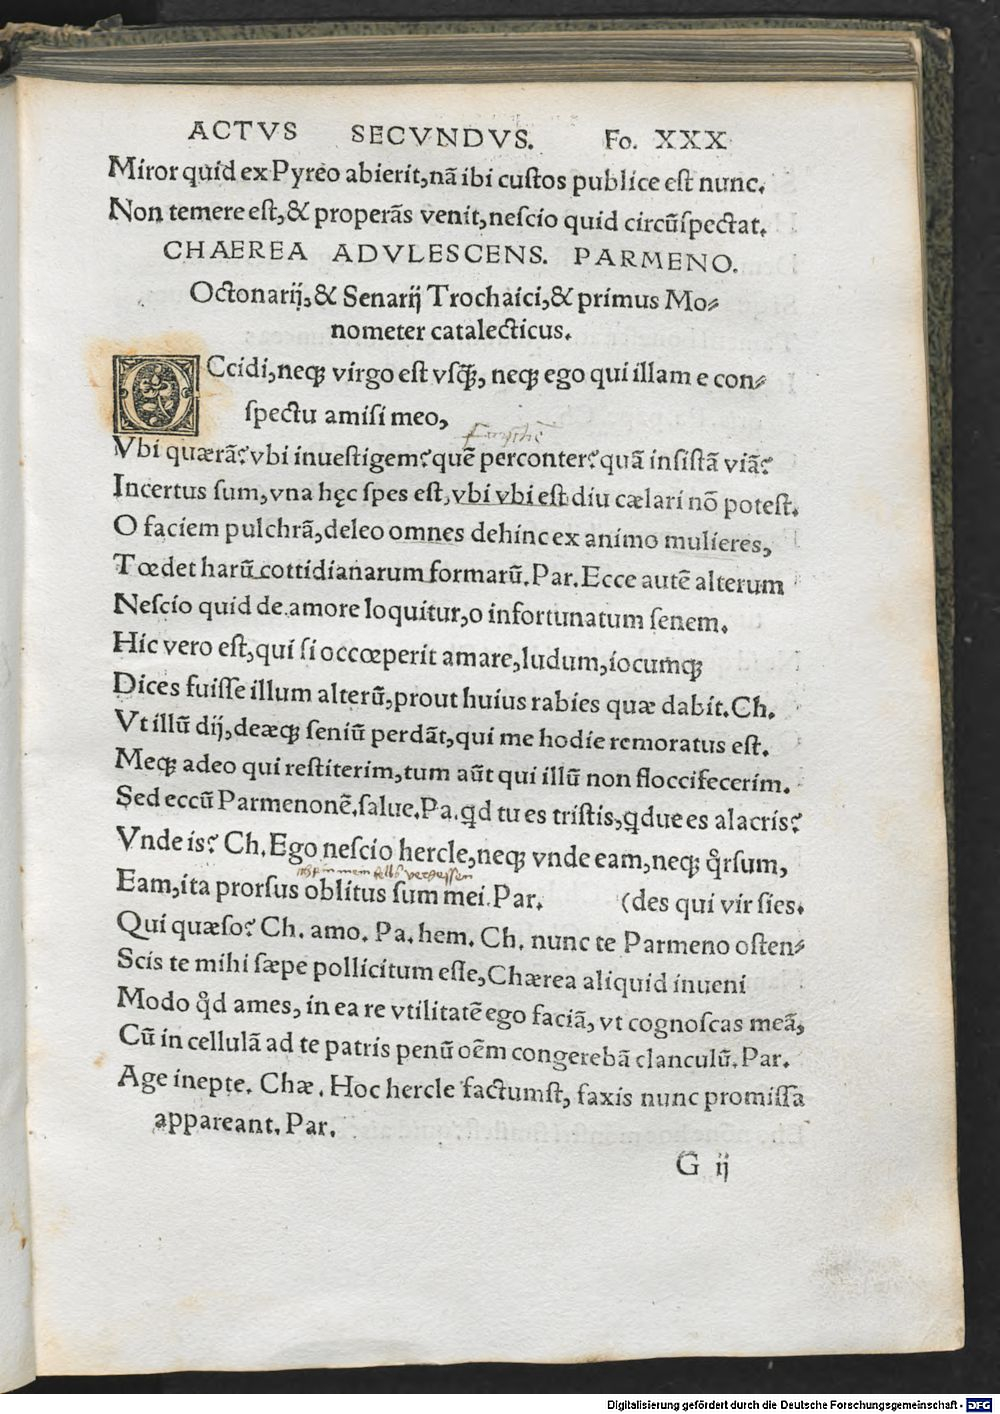 ACTVS SECVNDVS. Fo. XXX
Miror quid ex Pyreo abierit, nã ibi custos publice est nunc.
Non temere est, & properãs venit, nescio quid circũspectat.
CHAEREA ADVLESCENS. PARMENO.
Octonarij, & Senarij Trochaici, & primus Mo-
nometer catalecticus.
OCcidi, neqꝫ virgo est vsq̃ꝫ, neqꝫ ego qui illam e con-
spectu amisi meo,
Vbi quærã? vbi inuestigem? quẽ perconter? quã insistã viã?
Incertus sum, vna hęc spes est, vbi vbi est diu cælari nõ potest.
O faciem pulchrã, deleo omnes dehinc ex animo mulieres,
Tœdet harũ cottidianarum formarũ. Par. Ecce autẽ alterum
Nescio quid de amore loquitur, o infortunatum senem.
Hic vero est, qui si occœperit amare, ludum, iocumqꝫ
Dices fuisse illum alterũ, prout huius rabies quæ dabit. Ch.
Vt illũ dij, deæqꝫ seniũ perdãt, qui me hodie remoratus est.
Meqꝫ adeo qui restiterim, tum aũt qui illũ non floccifecerim.
Sed eccũ Parmenonẽ, salue. Pa. qd tu es tristis, qdue es alacris?
Vnde is? Ch. Ego nescio hercle, neqꝫ vnde eam, neqꝫ q̊rsum,
Eam, ita prorsus oblitus sum mei. Par. (des qui vir sies.
Qui quæso? Ch. amo. Pa. hem. Ch. nunc te Parmeno osten-
Scis te mihi sæpe pollicitum esse, Chærea aliquid inueni
Modo q̊d ames, in ea re vtilitatẽ ego faciã, vt cognoscas meã,
Cũ in cellulã ad te patris penũ oẽm congerebã clanculũ. Par.
Age inepte. Chæ. Hoc hercle factumst, faxis nunc promissa
appareant. Par.
G ij
Digitalisierung gefördert durch die Deutsche Forschungsgemeinschaft - DFG